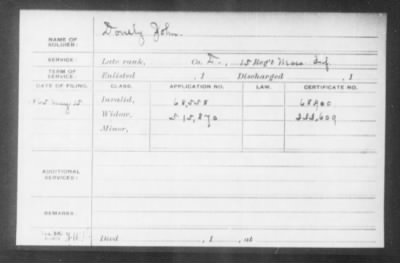 NAME OF SOLDIER: Donely John.
SERVICE: Late rank, Co. D., 15 Reg't Mass Inf.
TERM OF SERVICE: Enlisted , 1 Discharged , 1
DATE OF FILING. CLASS. APPLICATION NO. LAW. CERTIFICATE NO.
1865 May 15 Invalid, 68,558 68,900
Widow, 515,870
Minor,
ADDITIONAL SERVICES:
REMARKS.
Died , 1 , at